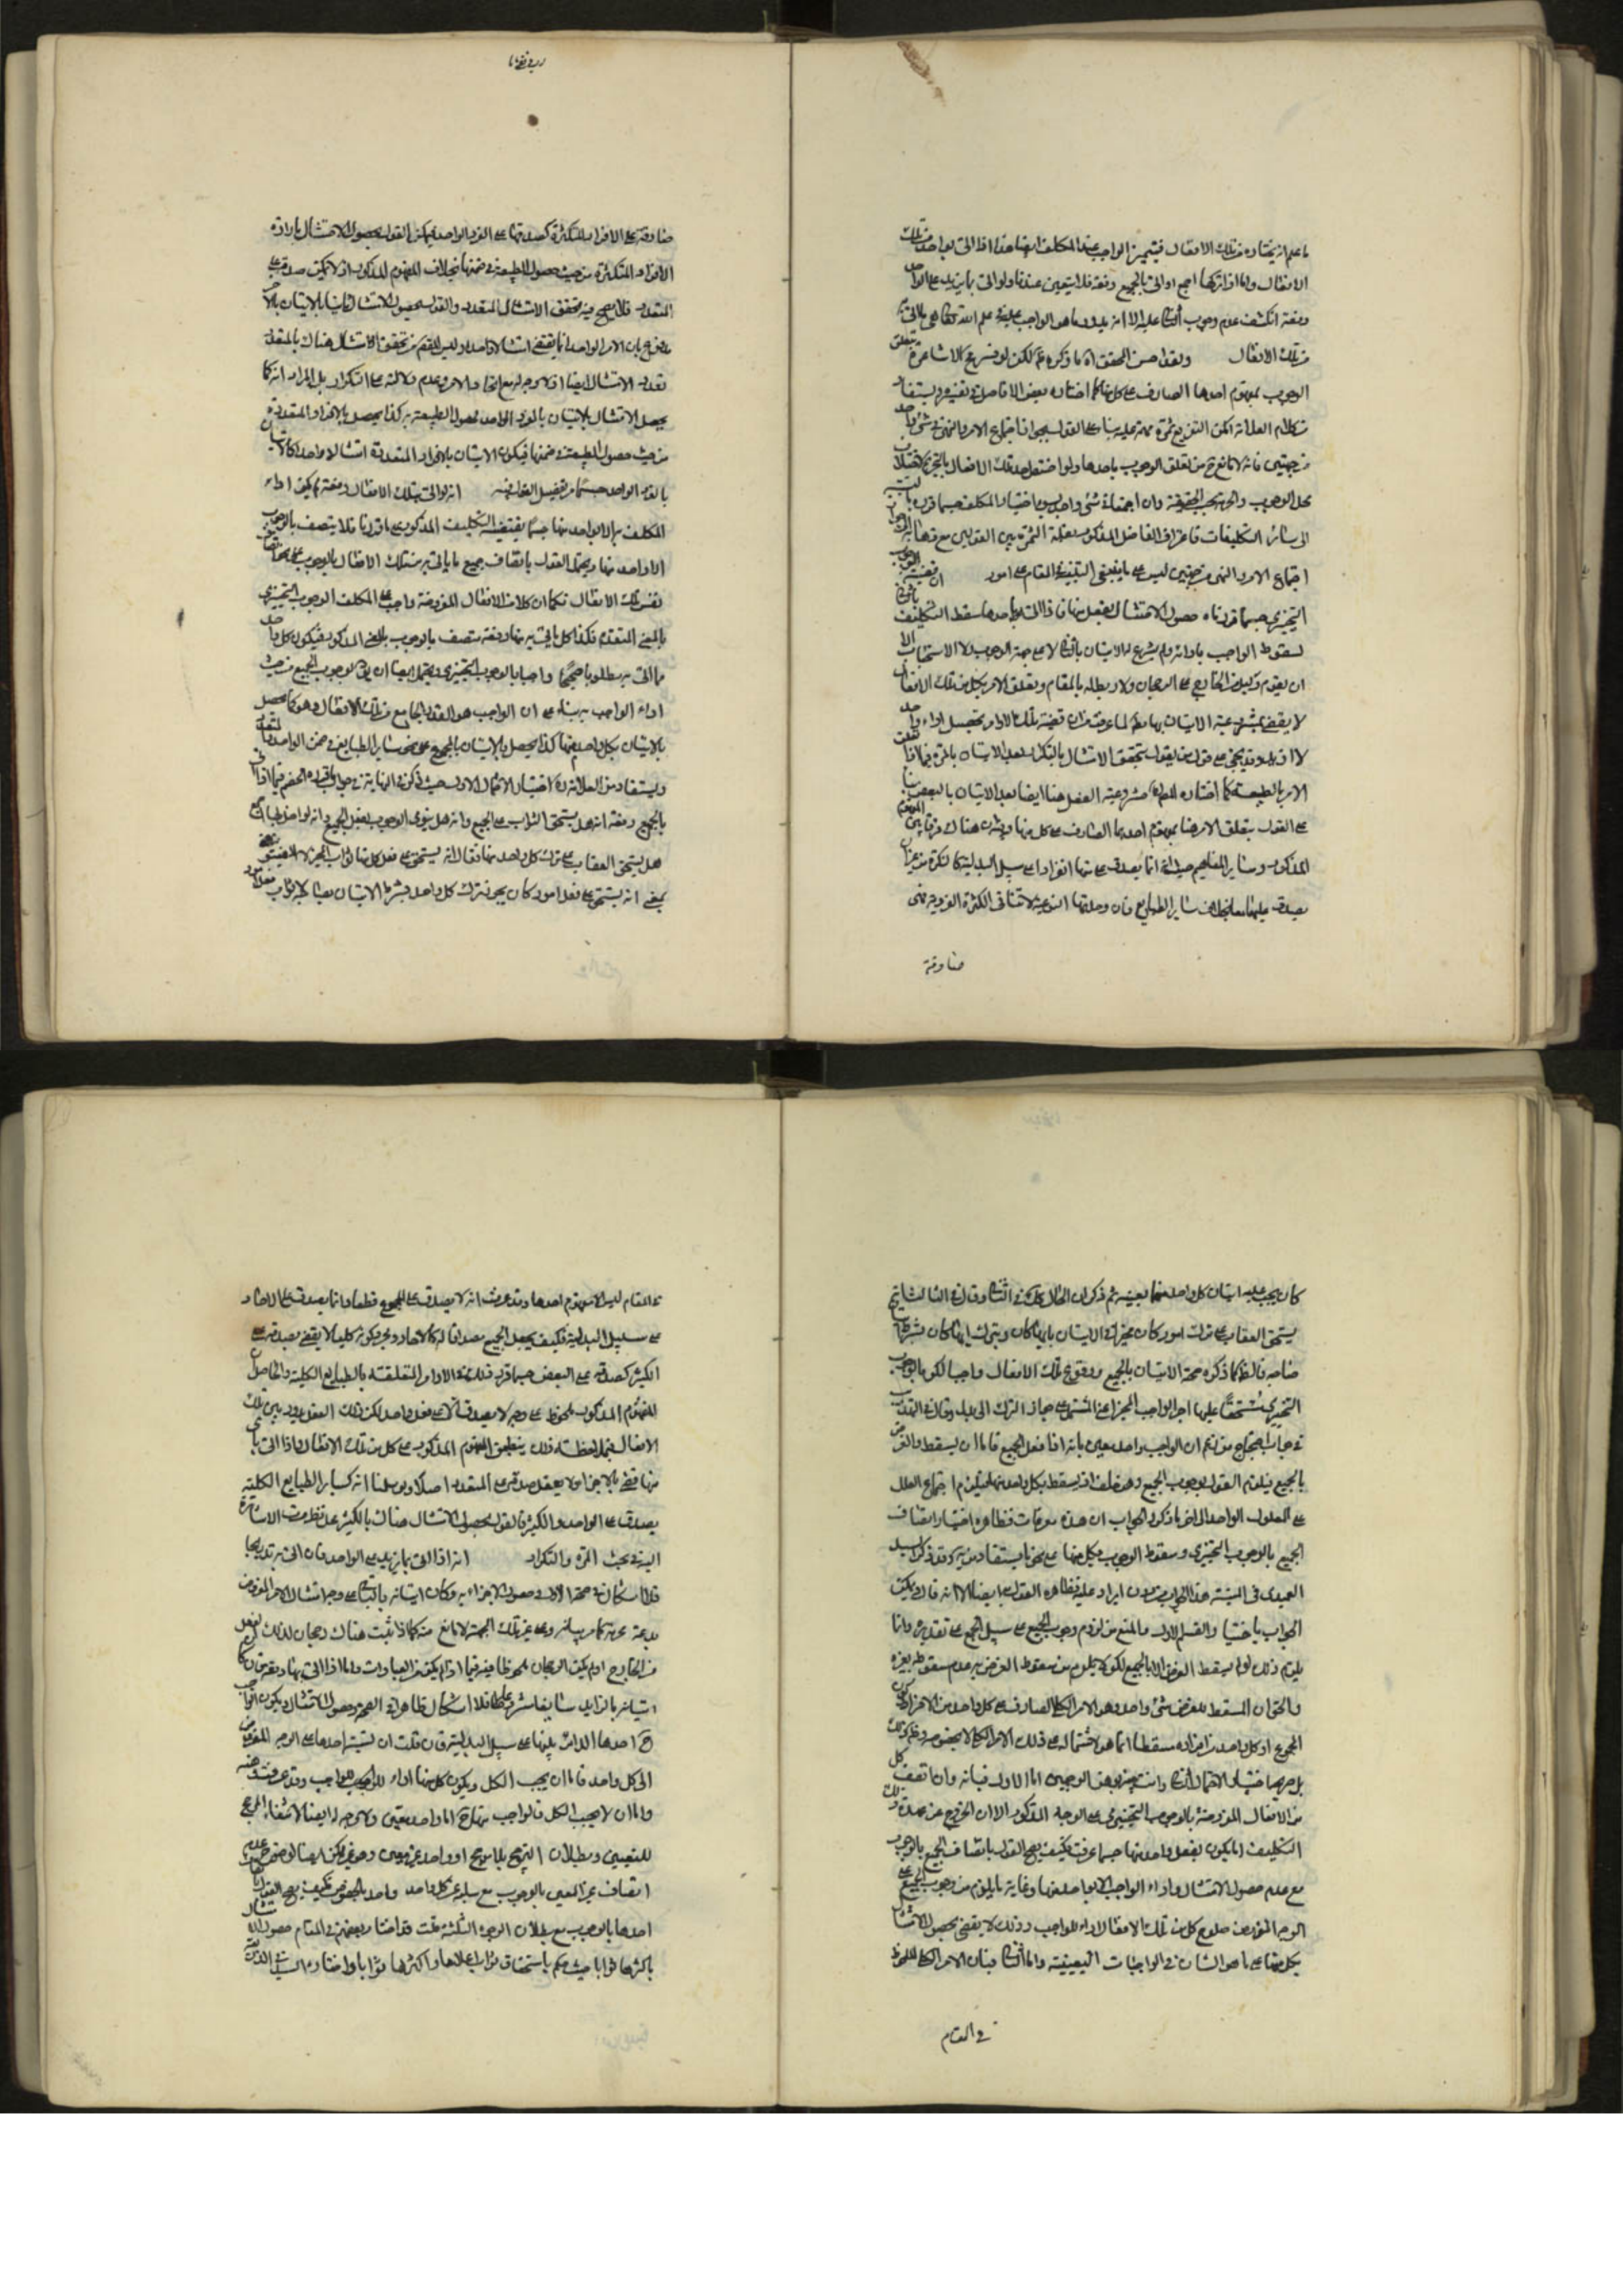 ما علم انه يختاره من تلك الافعال فيتميز الواجب عند المكلف ايضا هذا اذا اتى بواحد من تلك
الافعال واما اذا تركها اجمع او اتى بالجميع دفعة فلا يتعين عندنا ولو اتى بما يزيد على الواحد
دفعة انكشف عدم وجوب عليه الا انه يدور ما هو الواجب عليه علم الله
من تلك الافعال المحقق ما ذكره لكن
الوجوب بمفهوم احدها الصادق على كل منها كما اختاره بعض الافاضل ويستفاد
من كلام العلامة امكن التفريع بناء على القول بجواز اجتماع الامر والنهي في شيء واحد
من جهتين فانه لا مانع من تعلق الوجوب باحدها
محل الوجوب وان اجتمعا في شيء واحد باختيار المكلف حسبما
الى سائر التكليفات الفاضل المذكور الثمرة بين القولين مع
اجتماع الامر والنهي من جهتين ليس على ما ينبغي المقام على امور ان قضية الوجوب
التخييري حسبما قررناه حصول الامتثال بفعل منها فاذا اتى باحدها سقط التكليف
لسقوط الواجب بادائه ولم يشرع له الاتيان لا على جهة الوجوب ولا الاستحباب الا
ان يقوم دليل من الخارج على الرجحان ولا ربط له بالمقام وتعلق الامر بكل من تلك الافعال
لا يقضي بمشروعية الاتيان بها لما عرفت من ان قضية تلك الاوامر تحصيل اداء واحد
لا وقد يجيء على قول من يقول بتحقق الامتثال بالتكرار بعد الاتيان بالمرة فيما اذا تعلقت
الامر بالطبيعة كما اختاره مشروعية الفعل هنا ايضا بعد الاتيان بالبعض
على القول بتعلق الامر هنا بمفهوم احدها الصادق على كل منها هناك فرقا بين المفهوم
المذكور وساير المفاهيم حيث انه انما يصدق على سبيل البدلية كالنكرة من غير ان
يصدق عليها بخلاف ساير الطبايع فان وحدتها النوعية لا تنافي الكثرة الفردية فهي
صادقة
صادقة على الافراد المتكثرة كصدقها على الفرد الواحد فيمكن القول بحصول الامتثال باداء
الافراد المتكثرة من حيث حصول الطبيعة في ضمنها بخلاف المفهوم المذكور اذ لا يمكن صدقه على
المتعدد فلا يصح فيه تحقق الامتثال بالمتعدد والقول بحصول الامتثال ثانيا بالاتيان بالاخر
مدفوع بان الامر الواحد انما يقتضي امتثالا واحدا وليس المقصود من تحقق الامتثال هناك بالمتعدد
تعدد الامتثال ايضا اذ لا وجه له مع اتحاد الامر وعدم دلالته على التكرار بل المراد انه كما
يحصل الامتثال بالاتيان بالفرد الواحد لحصول الطبيعة به كذا يحصل بالافراد المتعددة
من حيث حصول الطبيعة في ضمنها فيكون الاتيان بالافراد المتعددة امتثالا واحدا كالاتيان
بالفرد الواحد حسبما مر تفصيل القول فيه انه لو اتى بتلك الافعال دفعة لم يكن اداء
المكلف به الا بواحد منها حسبما يقتضيه التكليف المذكور على ما قررنا فلا يتصف بالوجوب
الا واحد منها ويحتمل القول باتصاف جميع ما ياتي به من تلك الافعال بالوجوب على نحو اتصاف
نفس تلك الافعال فكما ان كلا من الافعال المفروضة واجب على المكلف بالوجوب التخييري
بالمعنى المتقدم فكذا كل ما ياتي به منها دفعة متصف بالوجوب بالمعنى المذكور فيكون كل واحد
مما اتى به مطلوبا صحيحا واجبا بالوجوب التخييري ويحتمل ايضا ان يق بوجوب الجميع من حيث
اداء الواجب به بناء على ان الواجب هو القدر الجامع من تلك الافعال وهو كما يحصل
بالاتيان بكل واحد منها كذا يحصل بالاتيان بالجميع على نحو ساير الطبايع في ضمن الواحد والمتعدد
ويستفاد من العلامة ره اختيار الاحتمال الاول حيث ذكر في النهاية في جواب الخصم فيما اذا اتى
بالجميع دفعة انه هل يستحق الثواب على الجميع وانه هل ينوي الوجوب بفعل الجميع وانه لو اخل بها اجمع
هل يستحق العقاب على ترك كل واحد منها فقال انه يستحق على فعل كل منها ثواب المخير لا المضيق
بمعنى انه يستحق على فعل امور كان يجوز ترك كل واحد بشرط الاتيان بصاحبه لا ثواب فعل امور
كان يجب عليه اتيان كل واحد منها بعينه ثم ذكر ان الحال كذلك في الثاني وقال في الثالث انه
يستحق العقاب على ترك امور كان مخيرا في الاتيان بايها كان وترك ايها كان بشرط الاتيان
صاحبه فلاحظ كما ذكره صحة الاتيان بالجميع ووقوع تلك الافعال واجبا لكن بالوجوب
التخييري مستحقا عليها اجر الواجب المخير اعني المشتمل على جواز الترك الى بدله وقال في
في جواب احتجاج من زعم ان الواجب واحد معين بانه اذا فعل الجميع فاما ان يسقط الفرض
بالجميع فيلزم القول بوجوب الجميع وهو خلف او يسقط بكل واحد منها فيلزم اجتماع العلل
على المعلول الواحد الى اخر ما ذكر والجواب ان هذه معرفات فظاهره اختيار اتصاف
الجميع بالوجوب التخييري وسقوط الوجوب بكل منها على نحو ما يستفاد من وقد ذكر السيد
العميدي في المنية هذا الجواب من دون ايراد عليه فظاهره القول به ايضا الا انه قال ويمكن
الجواب باختيار القسم الاول والمنع من لزوم وجوب الجميع على سبيل الجمع على تقديره وانما
يلزم ذلك لو لم يسقط الفرض الا بالجميع لكن لا يلزم من سقوط الفرض به عدم سقوطه بغيره
والحق ان المسقط للفرض شيء واحد وهو الامر الكلي الصادق على كل واحد من الافراد وكون
المجموع او كل واحد من افراده مسقطا انما هو لاشتماله على ذلك الامر الكلي لا بخصوصه
اختيار الاحتمال وانت خبير بوهن الوجهين اما الاول فبانه وان اتصف كل
من الافعال المفروضة بالوجوب التخييري على الوجه المذكور الا ان الخروج عن عهدة ذلك
التكليف انما يكون بفعل واحد منها حسبما عرفت فكيف يصح القول باتصاف الجميع بالوجوب
مع عدم حصول الامتثال واداء الواجب الا بواحد منها وغاية ما يلزم من وجوب الجميع على
الوجه المفروض صلوح كل من تلك الافعال لاداء الواجب وذلك لا يقضي بحصول الامتثال
بكل منها على ما هو الشان في الواجبات التعيينية واما فبان الامر الكلي الملحوظ
في المقام
في المقام ليس الا مفهوم احدها وقد عرفت انه لا يصدق على المجموع قطعا وانما يصدق على الاحاد
على سبيل البدلية فكيف يجعل الجميع مصداقا له كالاحاد ومجرد كونه كليا لا يقضي بصدقه على
الكثير كصدقه على البعض حسبما قرر ذلك في الاوامر المتعلقة بالطبايع الكلية والحاصل ان
المفهوم المذكور ملحوظ على وجه لا يصدق الا على فعل واحد لكن ذلك الفعل يدور بين تلك
الافعال فبملاحظة ذلك ينطبق المفهوم المذكور على كل من تلك الافعال فاذا اتى باي
منها قضى بالاجزاء ولا يعقل صدقه على المتعدد اصلا ولو سلمنا انه كساير الطبايع الكلية
يصدق على الواحد والكثير فالقول بحصول الامتثال هناك بالكثير محل نظر مرت الاشارة
اليه في بحث المرة والتكرار انه اذا اتى بما يزيد على الواحد فان اتى به تدريجا
فلا اشكال في صحة الاول وحصول الاجزاء به وكان اتيانه بالباقي على وجه امتثال الامر المفروض
بدعة محرمة كما مر بيانه وعلى غير تلك الجهة لا مانع منه كما اذا ثبت هناك رجحان لذلك الفعل
من الخارج او لم يكن الرجحان ملحوظا فيه فيما اذا لم يكن من العبادات واما اذا اتى بها دفعة فان كان
اتيانه بالزايد سائغا شرعا فلا اشكال ظاهرا في الصحة وحصول الامتثال ويكون الواجب
ح احدها الدائر بينها على سبيل البدلية فان قلت ان نسبة احدها على الوجه المفروض
الى كل واحد فاما ان يجب الكل ويكون كل منها اداء للواجب وقد عرفت وهنه
واما ان لا يجب الكل فالواجب منها ح اما واحد معين ولا وجه له ايضا لانتفاء المرجح
للتعيين وبطلان الترجيح بلا مرجح او واحد غير معين وهو غير ممكن ايضا
اتصاف غير المعين بالوجوب مع سلبه عن كل واحد واحد بالخصوص فكيف يصح القول
احدها بالوجوب مع بطلان الوجوه الثلثة قلت قد اختار بعضهم في المقام حصول الامتثال
باكثرها ثوابا حيث حكم باستحقاق ثواب اعلاها واكثرها ثوابا واختاره السيد